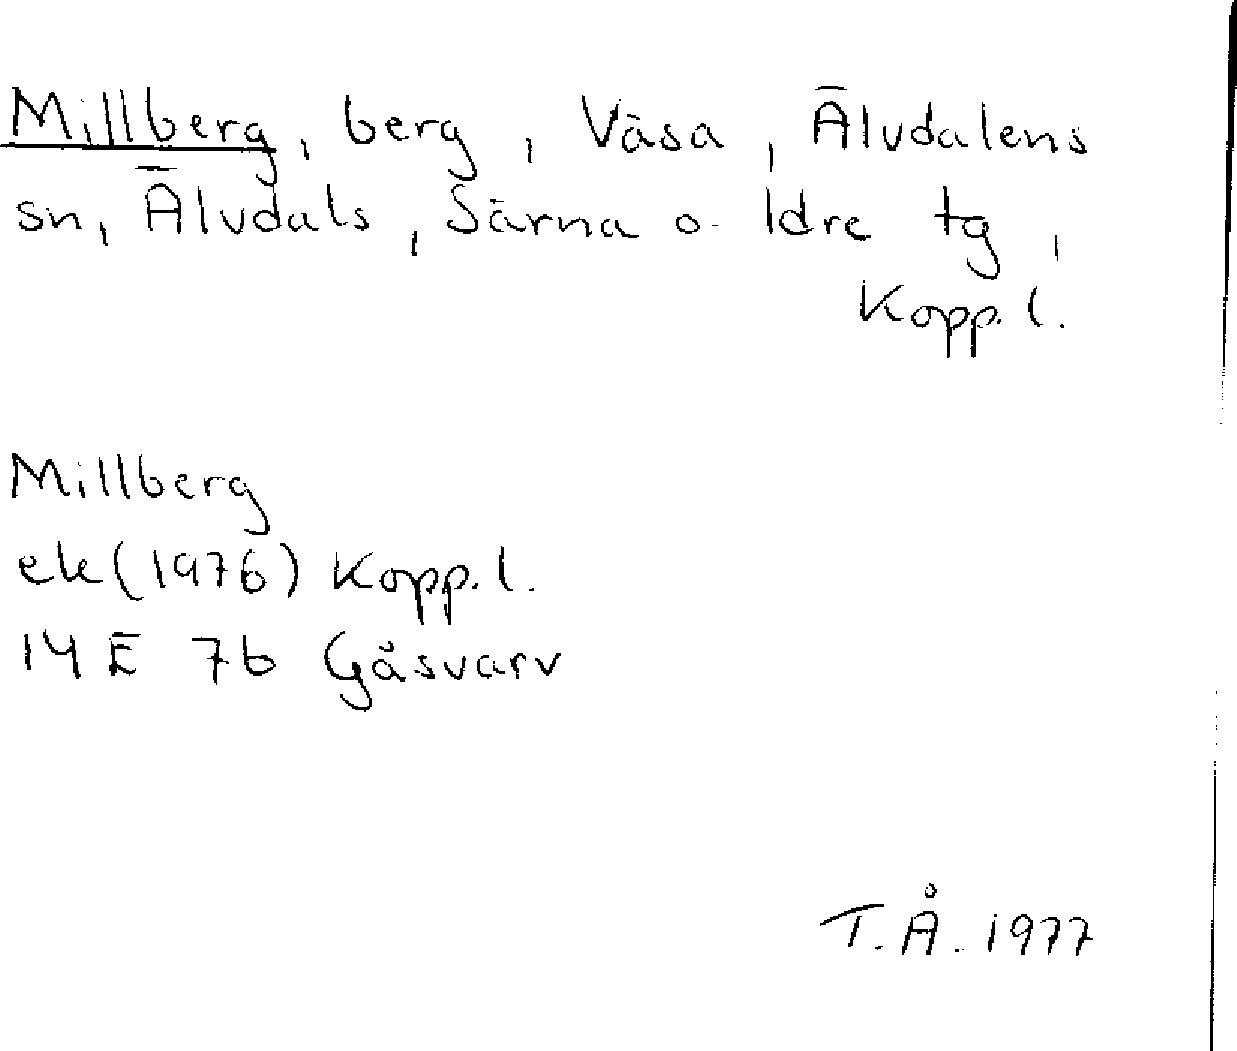 Millberg, berg, Väsa, Älvdalens
sn, Älvdals, Särna o. Idre tg,
Kopp. l.
Millberg
ek (1976) Kopp. l.
14 E 7b Gåsvarv
T. Å. 1977